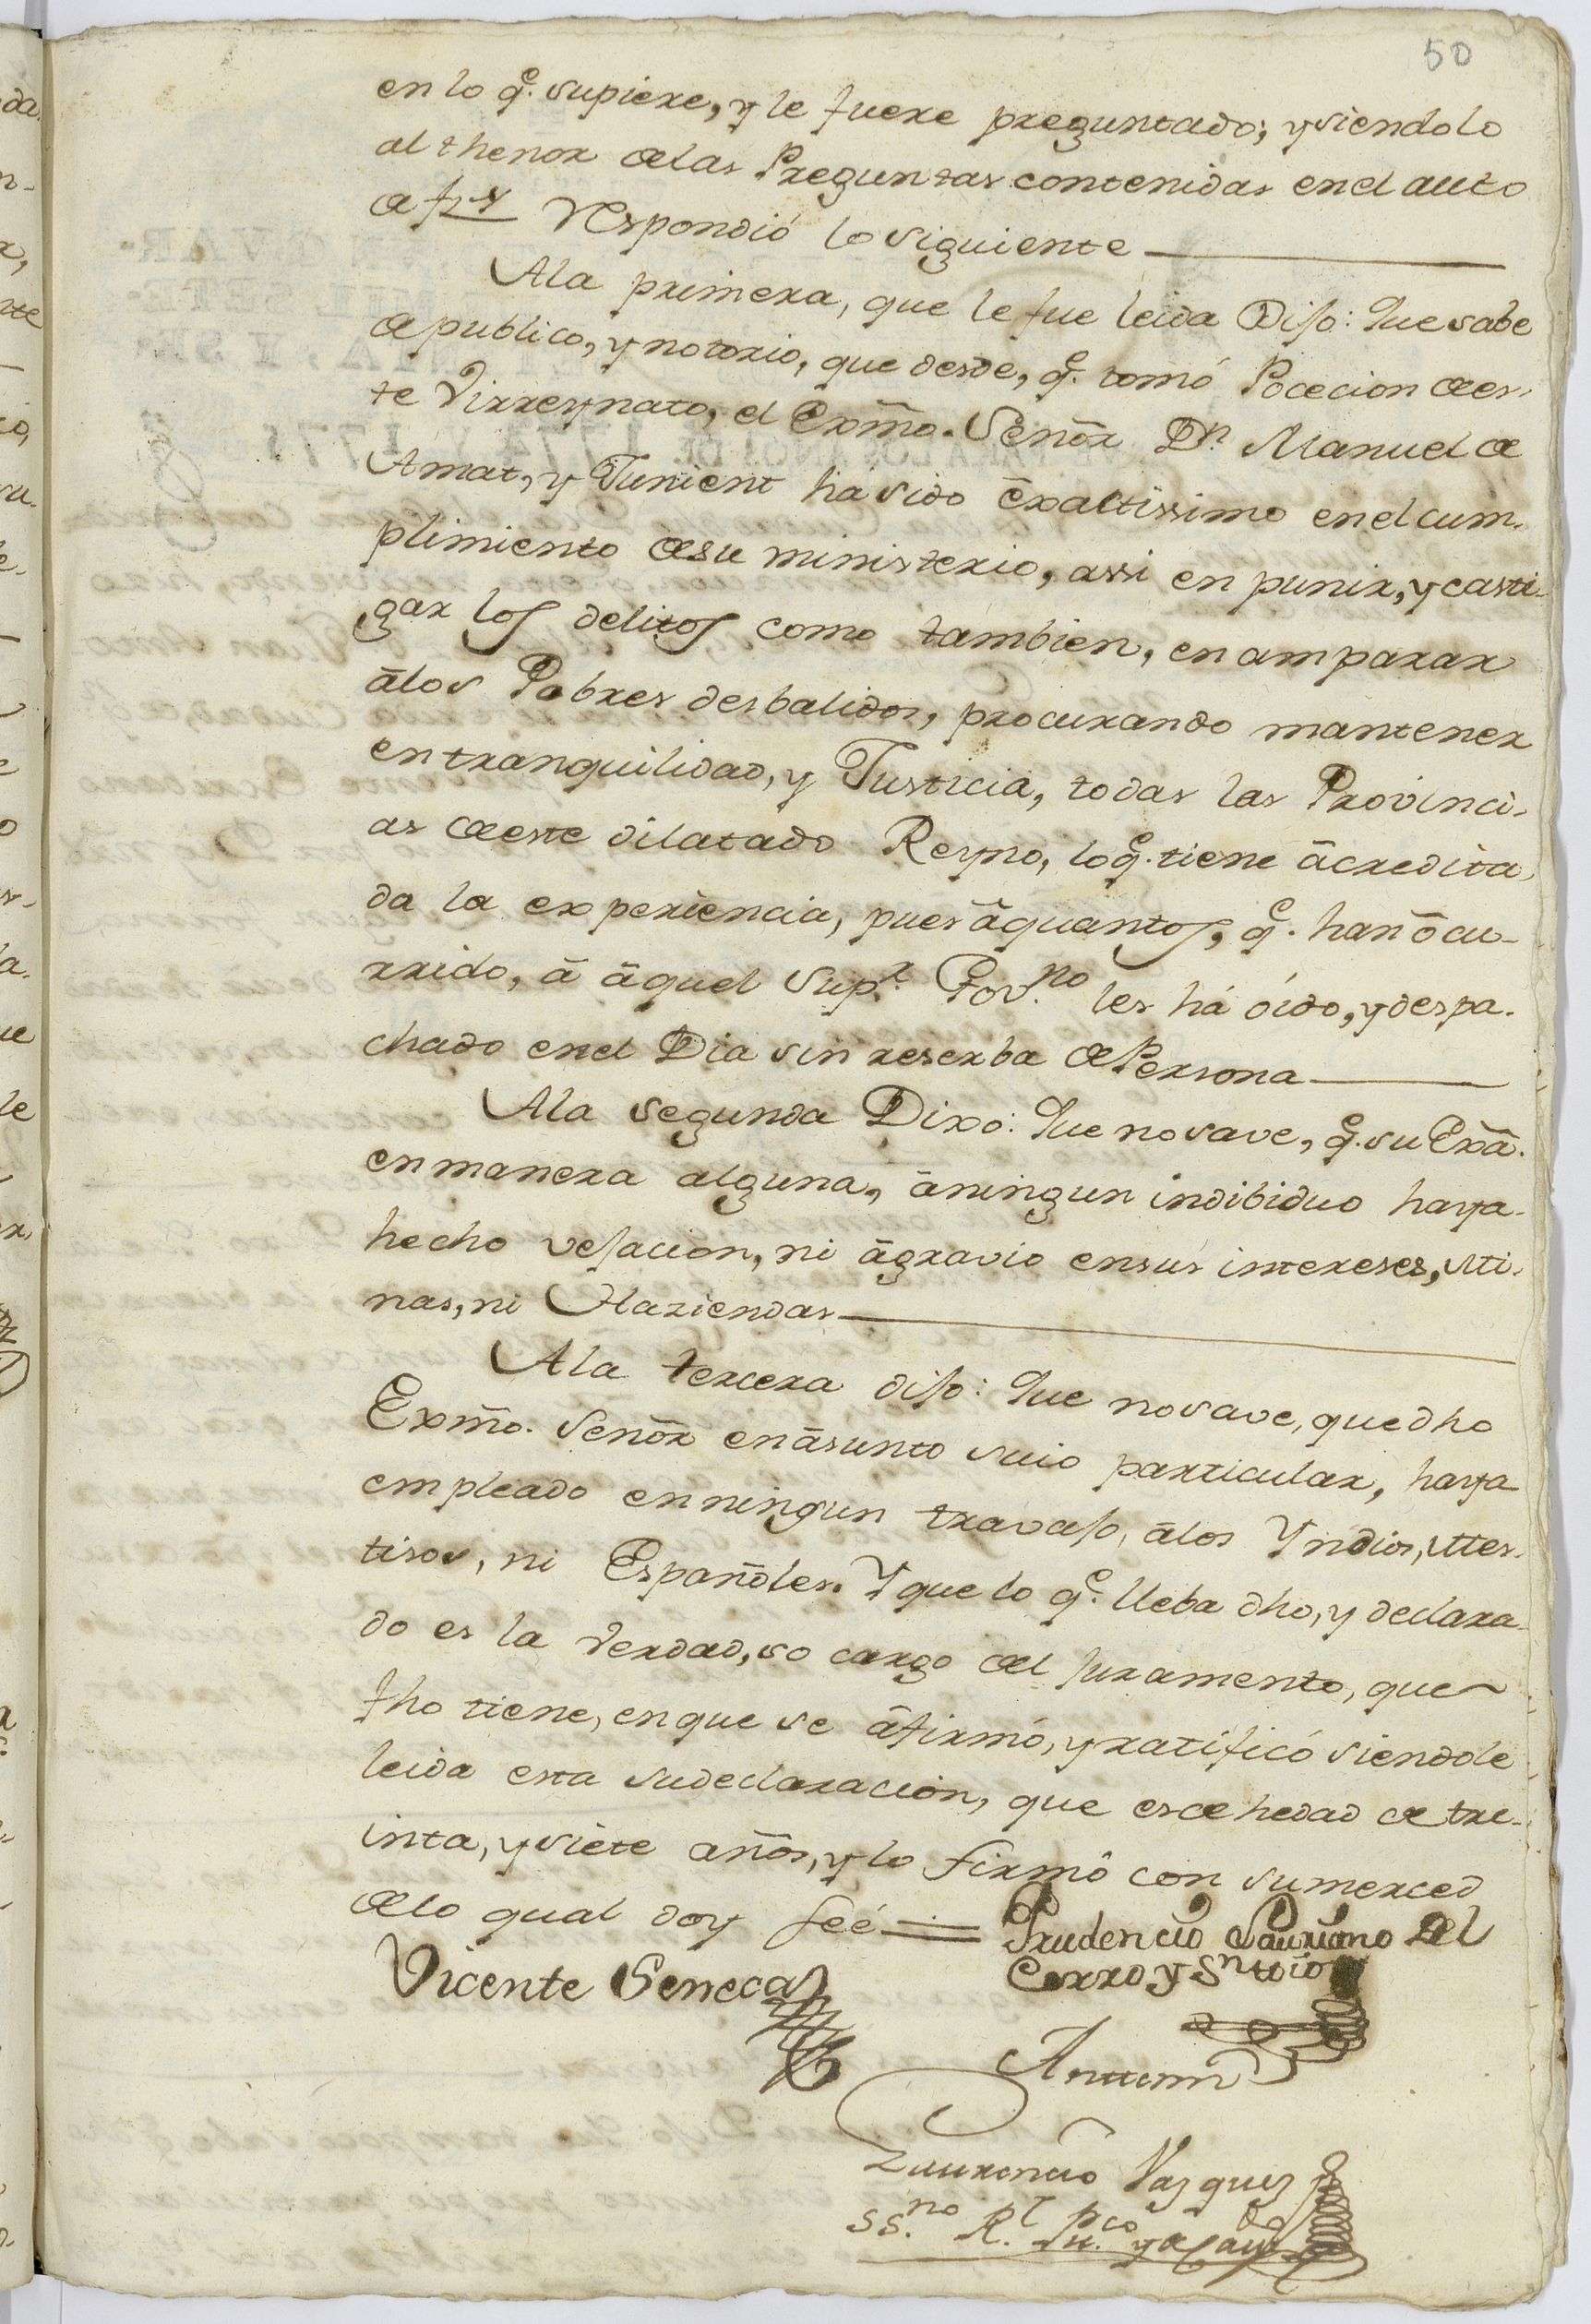 50
en lo q.e supiere, y le fuere preguntado; y siendolo
al thenor de las Preguntas contenidas en el auto
de fz.s respondió lo siguiente
A la primera, que le fue leida Dijo: Que sabe
de publico, y notorio, que desde, q.e tomó Pocecion de es-
te Virreynato, el Exmô. Señor Dn Manuel de
Amat, y Junient há sido exactissimo en el cum-
plimiento de su ministerio, assi en punir, y casti-
gar los delitos como tambien, en amparar
âlos Pobres desbalidos, procurando mantener
en tranquilidad, y Justicia, todas las Provinci-
as de este dilatado Reyno, lo q.e tiene âcredita-
da la experiencia, pues âquantos, q.e han ôcu-
rrido, â âquel Sup.r Gov.no les há óido, y despa-
chado en el Dia sin reserba de Persona
A la segunda Dixo: Que no save, q.e su Exâ.
en manera alguna, âningun indibiduo haya
hecho vejacion, ni âgravio en sus intereses, Mi-
nas, ni Haziendas
A la tercera dijo: Que no save, que dho
Exmô. Señor en âsunto suio particular, haya
empleado en ningun travajo, âlos Yndios, Mes-
tisos, ni Españoles. Y que lo q.e lleba dho, y declara-
do es la Verdad, so cargo del juramento, que
fho tiene, en que se âfirmó, y ratificó siendole
leida esta su declaracion, que es de hedad de tre-
inta, y siete años, y lo firmô con su merced
de lo qual doy feé
Prudencio Lauriano Del
Vicente Seneca
Corro y Sn
Antemi
Laurencio Vazquez
SS.no R.l Pu.co y de